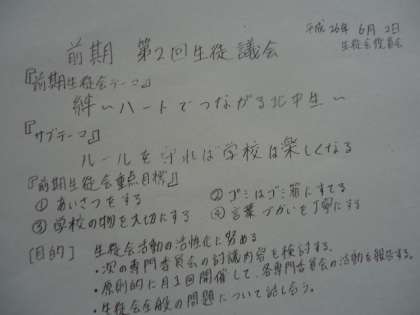 平成26年 6月 2日
生徒会役員会
前期 第2回生徒議会
『前期生徒会テーマ』
絆 ~ハートでつながる北中生~
『サブテーマ』
ルールを守れば学校は楽しくなる
『前期生徒会重点目標』
① あいさつをする ② ゴミはゴミ箱にすてる
③ 学校の物を大切にする ④ 言葉づかいを丁寧にする
[目的] 生徒会活動の活性化に努める
・次の専門委員会の討議内容を検討する。
・原則的に月1回開催して、各専門委員会の活動を報告する。
・生徒会全般の問題について話し合う。